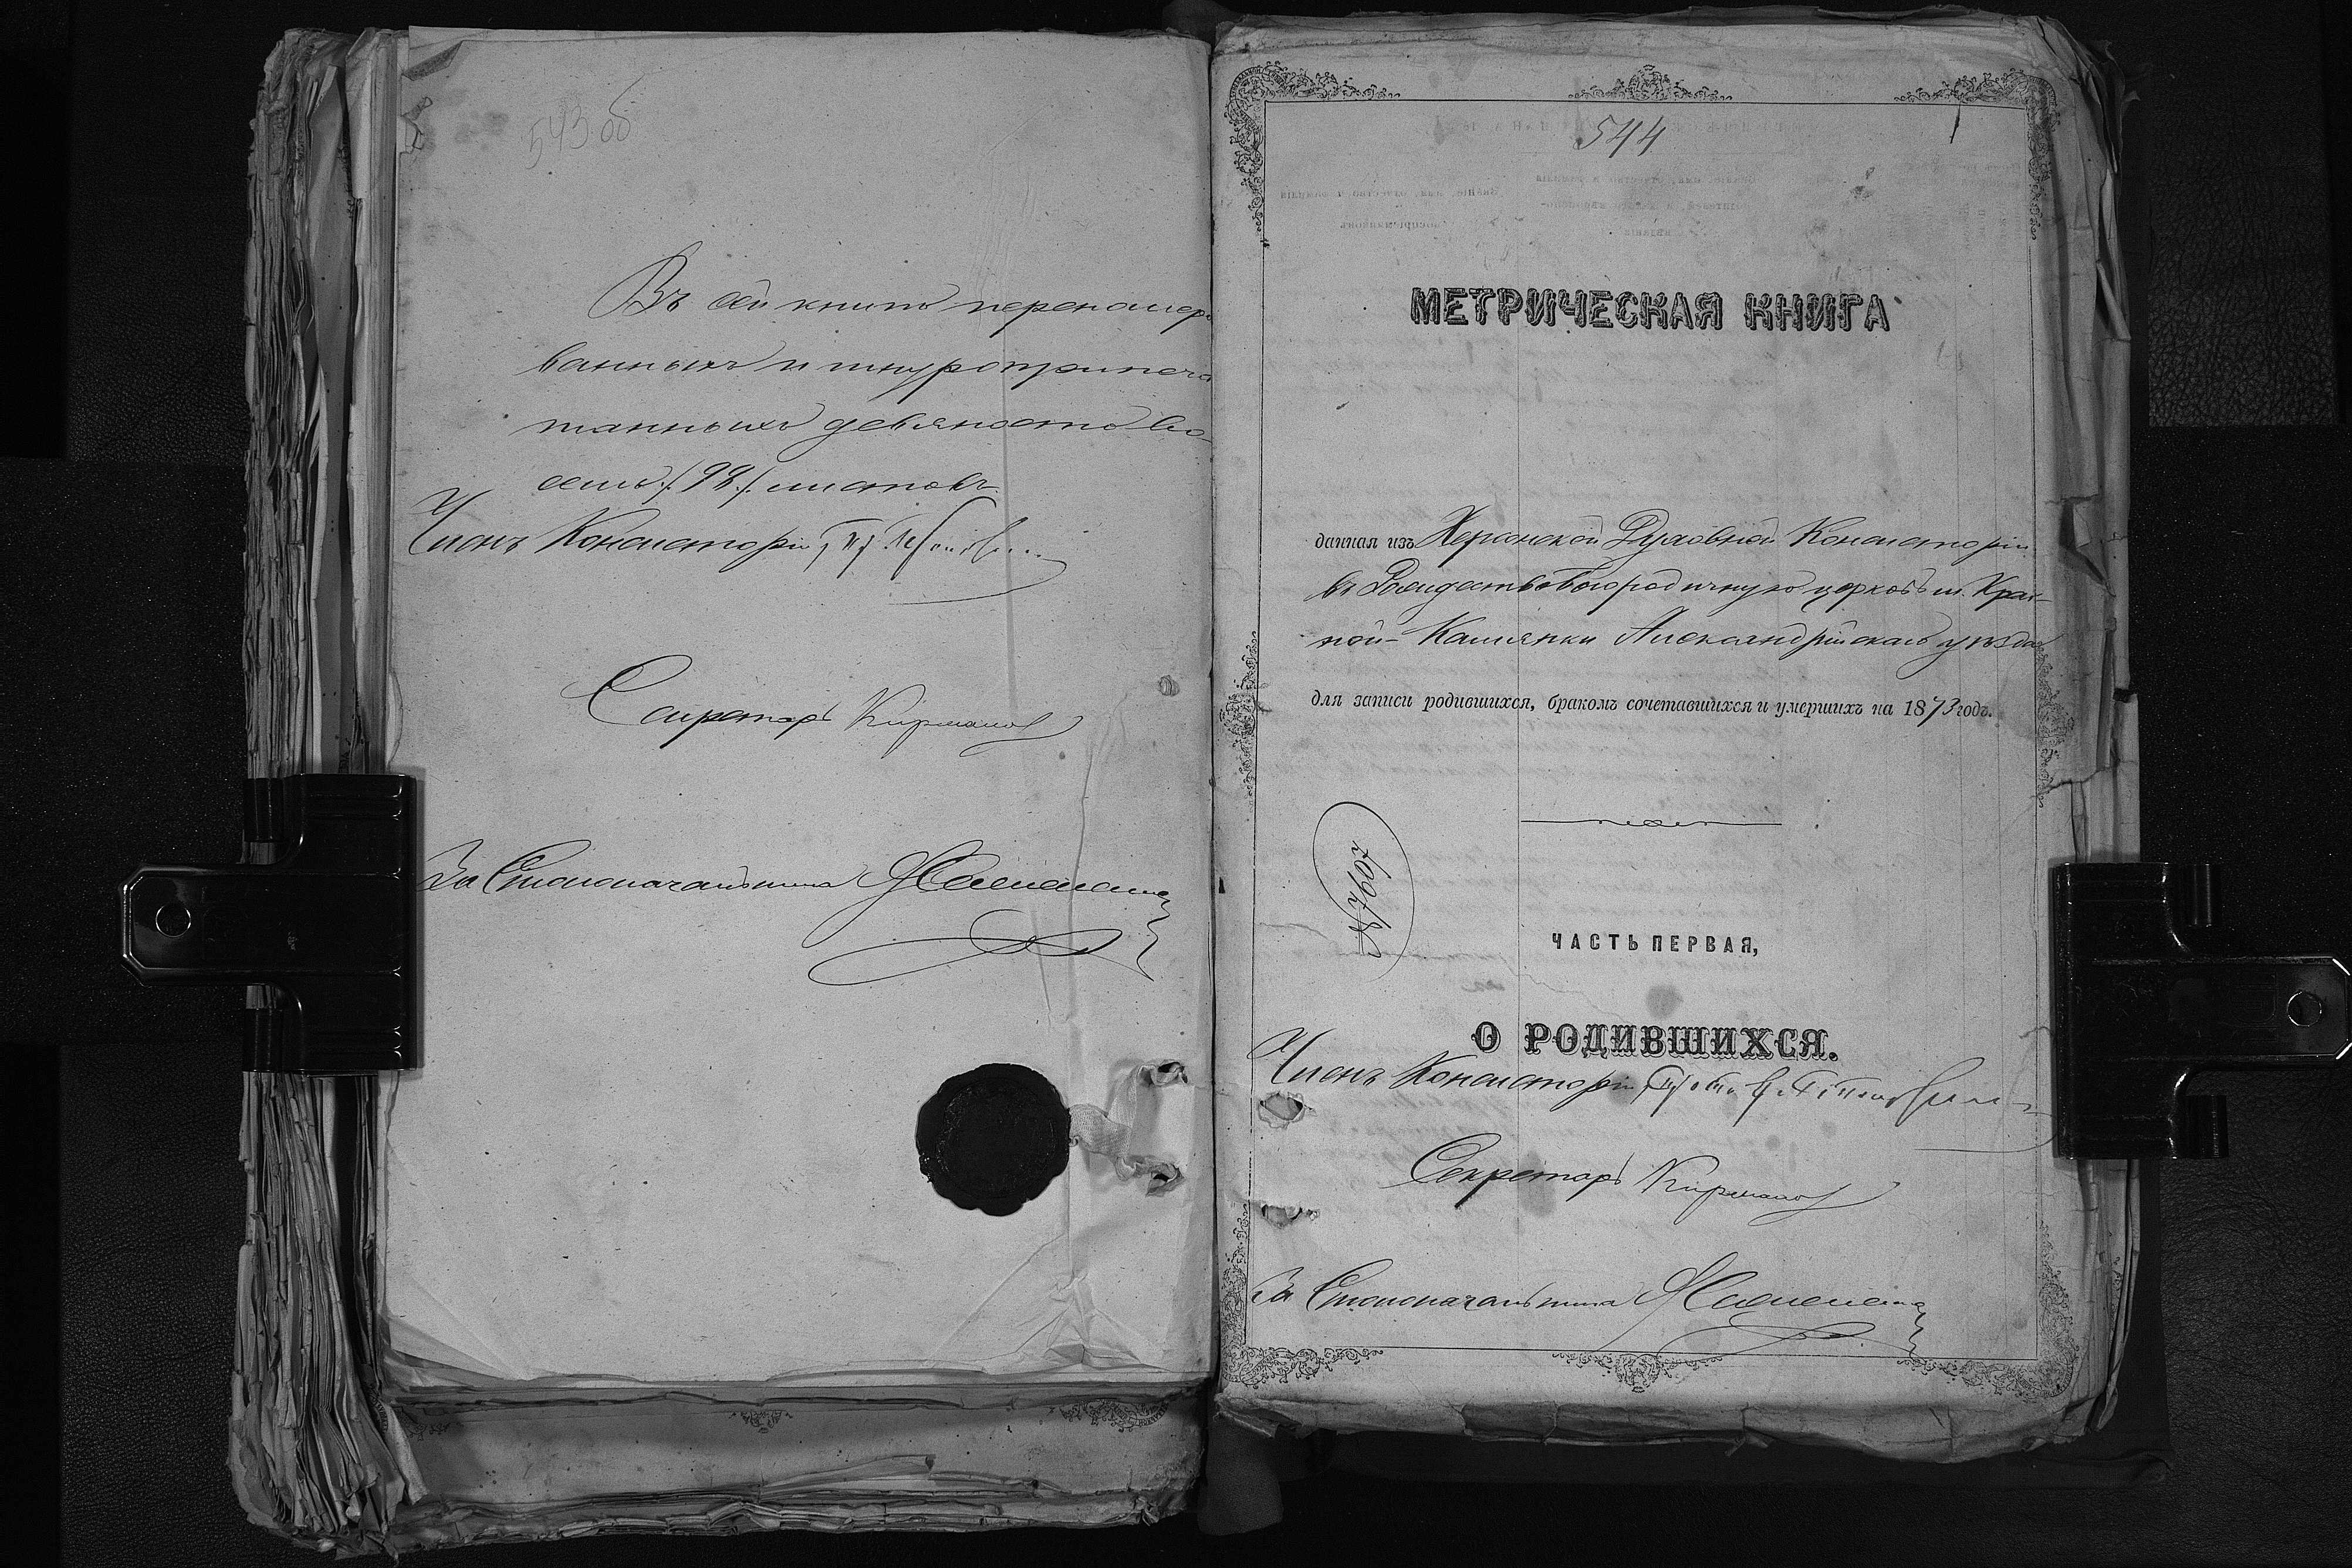 543 об
Въ сей книгѣ перенумеро
ванныхъ и шнуроприпеча
танныхъ девяносто во-
семь /98/ листовъ
Членъ Консисторіи,
Секретарь
За Столоначальника
544
МЕТРИЧЕСКАЯ КНИГА
данная изъ Херсонской Духовной Консисторіи
въ Рождество Богородичную церковь м. Крас-
ной-Камянки Александрійскаго уѣзда
для записи родившихся, бракомъ сочетавшихся и умершихъ на 1873 годъ.
№ 7607
ЧАСТЬ ПЕРВАЯ,
О РОДИВШИХСЯ.
Членъ Консисторіи,
Секретарь
За Столоначальника